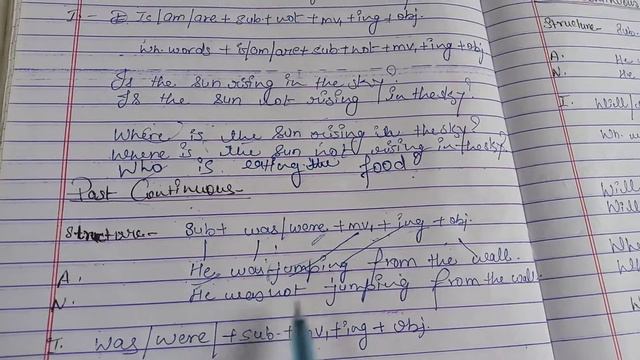 I - Is/am/are + sub + not + mv1 + ing + obj.
Wh. words + is/am/are + sub + not + mv1 + ing + obj
Is the sun rising in the sky?
Is the sun not rising in the sky?
Where is the sun rising in the sky?
Where is the sun not rising in the sky
Who is eating the food?
Past Continuous
Structure - Sub + was/were + mv1 + ing + obj.
A. He was jumping from the wall.
N. He was not jumping from the wall.
I. Was/were + sub + mv1 + ing + obj.
Structure - Sub.
A. He
N. He
I. Will/
Wh. w
Will
Will
Whe
Wh